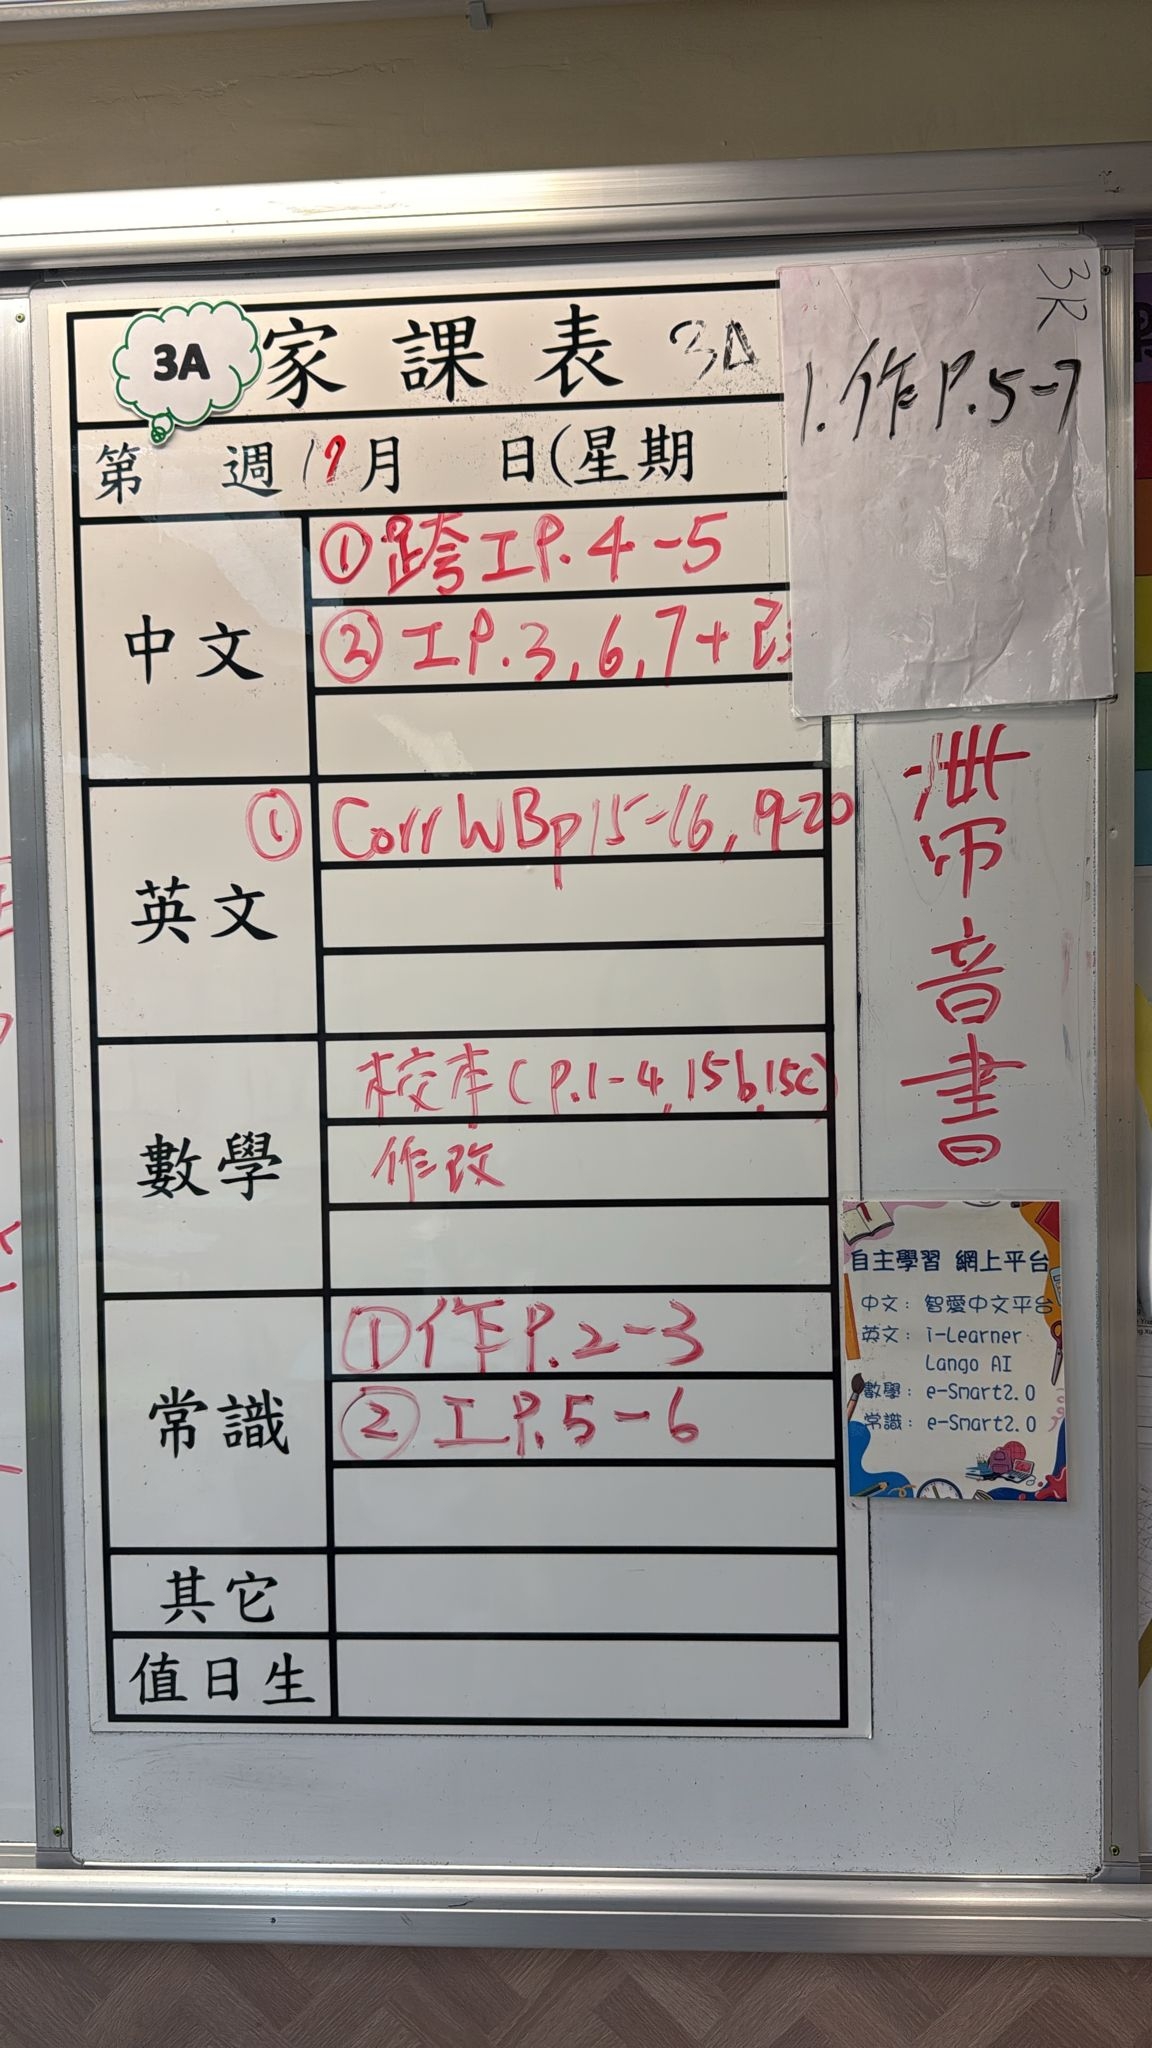 3A 家課表 3A
第 週 月 日(星期
中文
① 跨工P.4-5
② 工P.3,6,7+
英文
① Corr WBp15-16, 19-20
數學
校本(p.1-4, 15b, 15c)
作改
常識
① 作P.2-3
② 工P.5-6
其它
值日生
3R
1.作P.5-7
帶音書
自主學習 網上平台
中文：智愛中文平台
英文：i-Learner
Lango AI
數學：e-Smart2.0
常識：e-Smart2.0